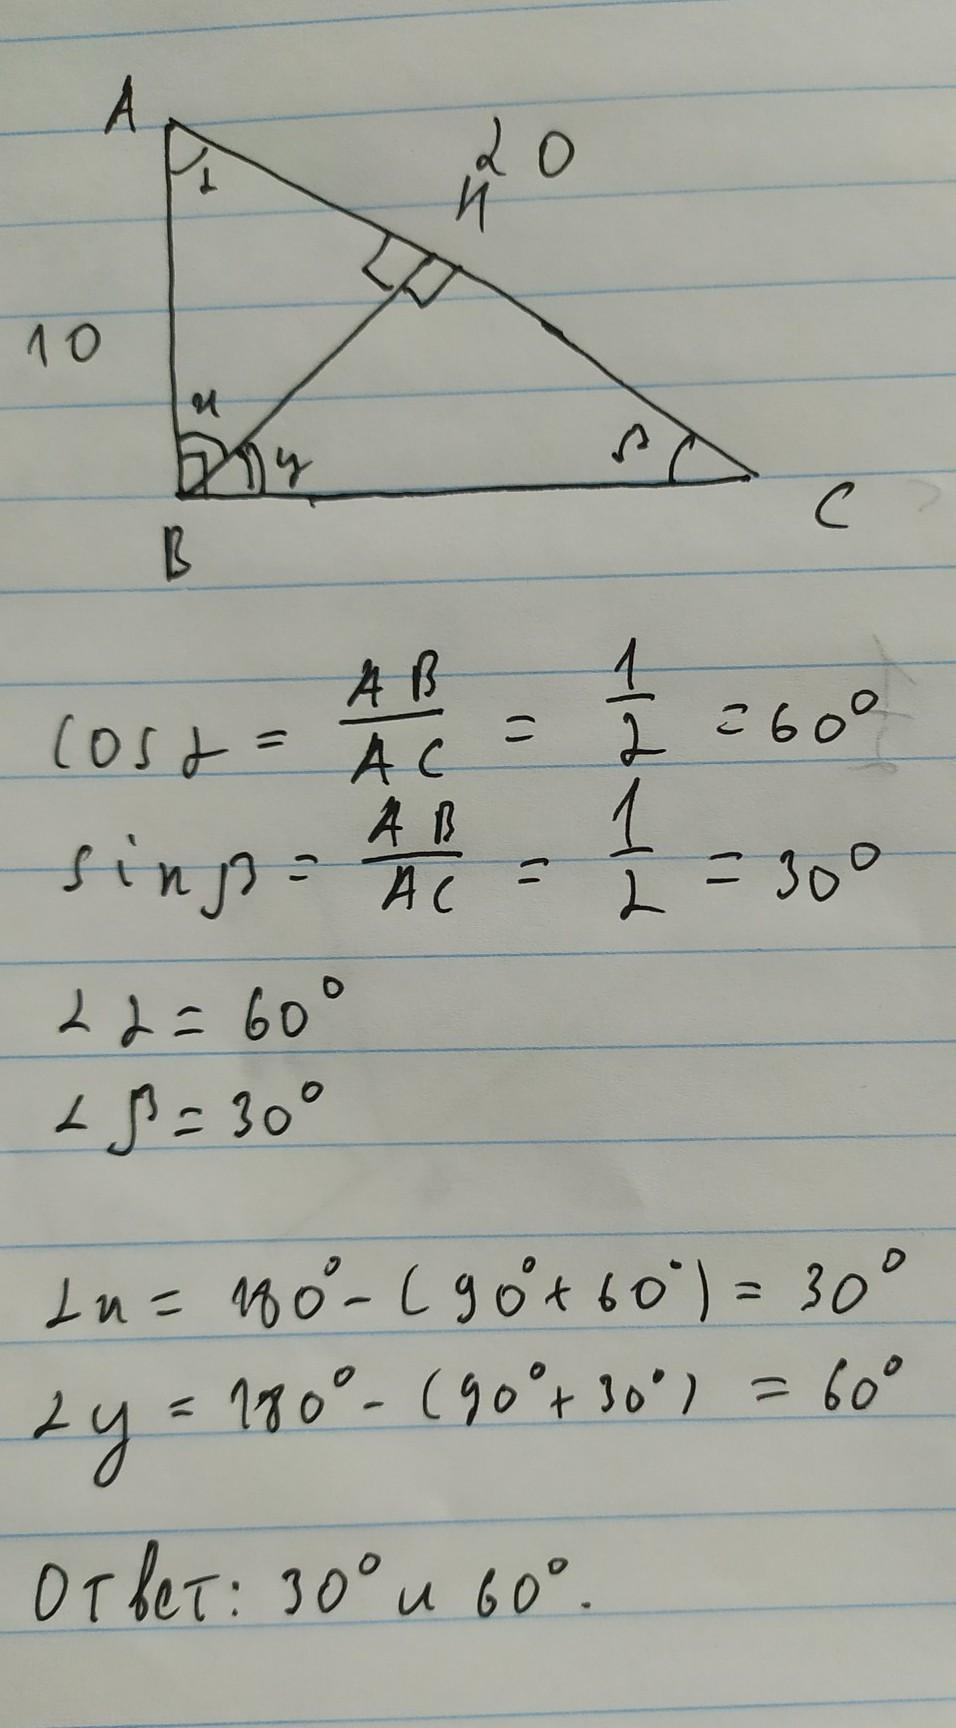 A
20
H
α
10
x
y
β
B
C
cos α = AB/AC = 1/2 = 60°
sin β = AB/AC = 1/2 = 30°
∠α = 60°
∠β = 30°
∠x = 180° - (90° + 60°) = 30°
∠y = 180° - (90° + 30°) = 60°
Ответ: 30° и 60°.